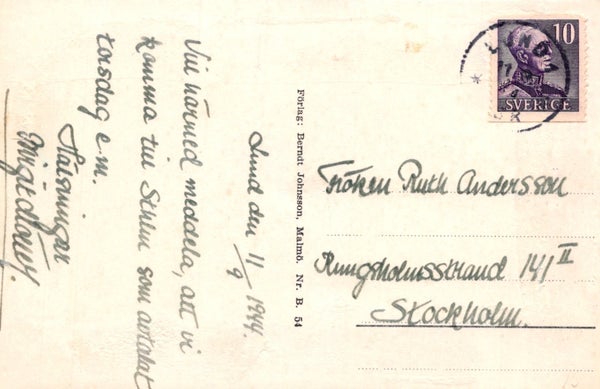 Lund den 11/9 1944.
Vill härmed meddela, att vi
komma till Sthlm som avtalat
torsdag e.m.
Hälsningar
Förlag: Berndt Johnsson, Malmö. Nr. B. 54
10
SVERIGE
LUND 1
Fröken Ruth Andersson
Kungsholmsstrand 141 II
Stockholm.